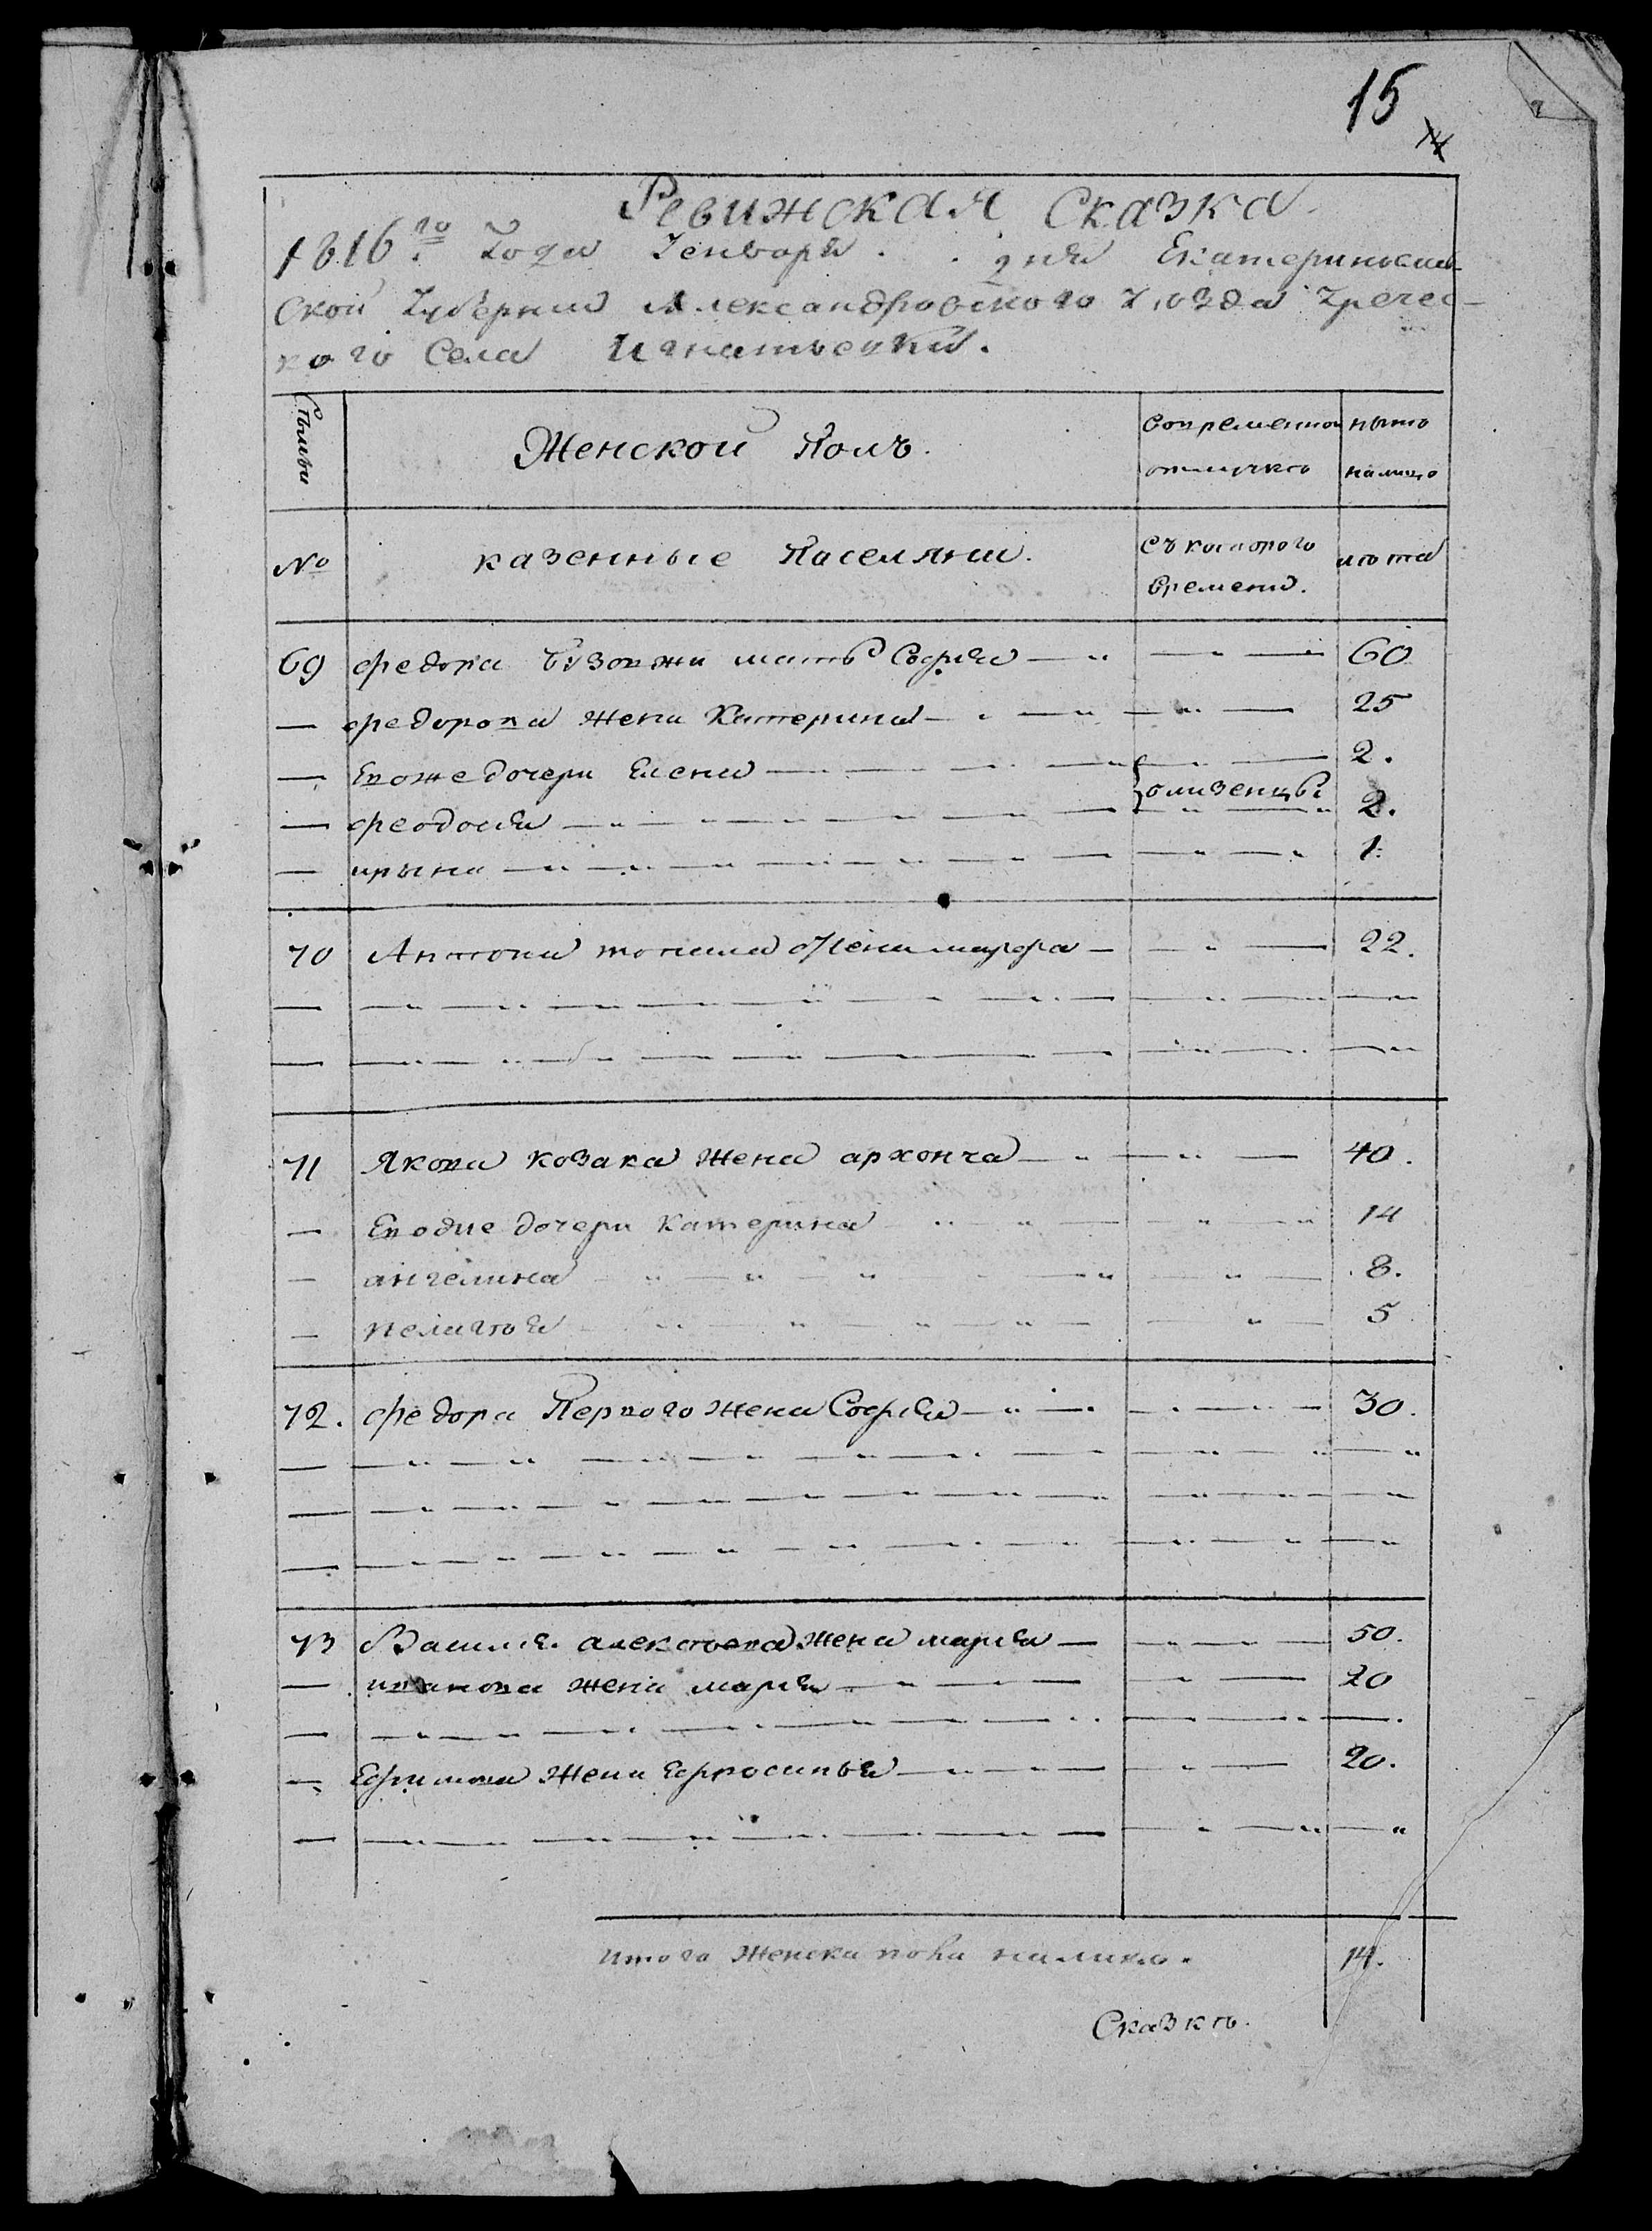 15
14
Ревижская Сказка
1816го Года Генваря . . дня Екатеринослав-
ской Губернии Александровского Уѣзда Гречес-
кого Села Игнатьевки.
Семьи
Женской Полъ.
Во временной нынѣ
отлучкѣ налицо
№
казенные Поселяни.
Съ которого лѣта
времени.
69 федора мать София 60
федорова жена Катерина 25
Евоже дочери Елена 2.
} близенцы
феодосия 2.
ирына 1.
70 Антона жена марфа 22.
71 Якова козака жена архонча 40.
Евоже дочери Катерина 14
ангелина 8.
пелагѣя 5
72. федора Первого жена София 30.
73 Василия алексѣева жена мария 50.
иванова жена мария 20
Ефимова жена Ефросинья 20.
итого женска пола налицо. 14.
Сказкѣ.